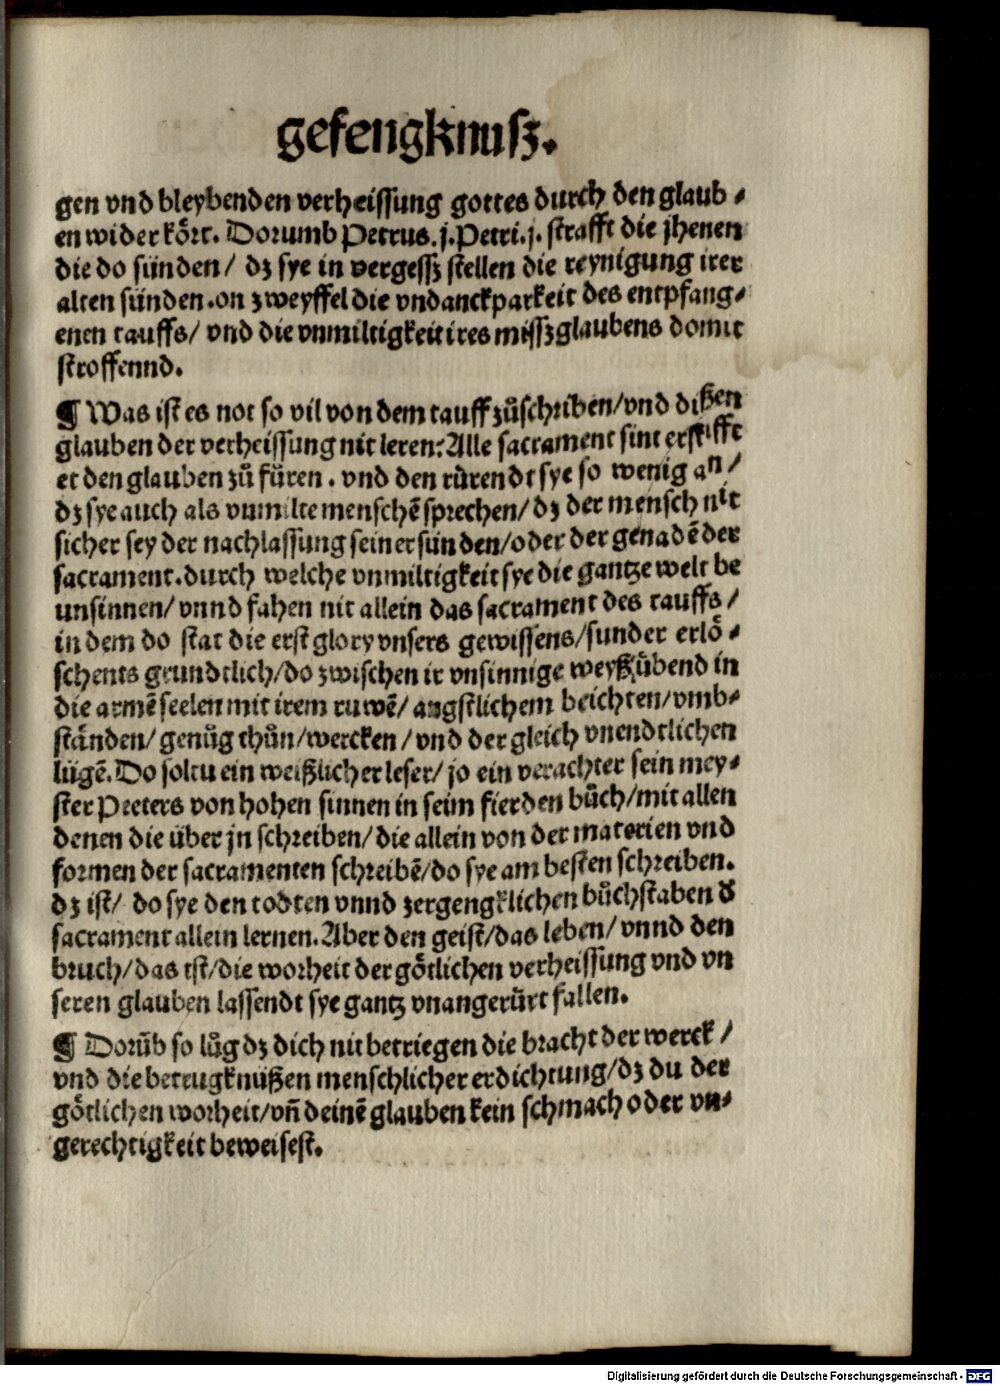 gefengknusz.
gen vnd bleybenden verheissung gottes durch den glaub⸗
en wider kört. Dorumb Petrus. j. Petri. j. strafft die jhenen
die do sünden/ dz sye in vergessz stellen die reynigung irer
alten sünden. on zweyffel die vndanckparkeit des entpfang⸗
enen tauffs/ vnd die vnmiltigkeit ires misszglaubens domit
stroffennd.
¶ Was ist es not so vil von dem tauff zůschriben/vnd dißen
glauben der verheissung nit leren: Alle sacrament sint erstifft
et den glauben zů fůren. vnd den rürendt sye so wenig an/
dz sye auch als vnmilte menschē sprechen/ dz der mensch nit
sicher sey der nachlassung seiner sünden/oder der genadē der
sacrament. durch welche vnmiltigkeit sye die gantze welt be
unsinnen/ vnnd fahen nit allein das sacrament des tauffs/
in dem do stat die erst glory vnsers gewissens/sunder erlö⸗
schents grundtlich/do zwischen ir vnsinnige weyß übend in
die armē seelen mit irem ruwē/ angstlichem beichten/vmb⸗
ständen/ genůg thůn/wercken/ vnd der gleich vnendtlichen
lügē. Do soltu ein weißlicher leser/ jo ein verachter sein mey⸗
ster Peeters von hohen sinnen in seim fierden bůch/mit allen
denen die über jn schreiben/ die allein von der materien vnd
formen der sacramenten schreibē/do sye am besten schreiben.
dz ist/ do sye den todten vnnd zergengklichen bůchstaben d̕
sacrament allein lernen. Aber den geist/das leben/ vnnd den
bruch/das ist/die worheit der götlichen verheissung vnd vn
seren glauben lassendt sye gantz vnangerürt fallen.
¶ Dorūb so lůg dz dich nit betriegen die bracht der werck/
vnd die betrugknüßen menschlicher erdichtung/dz du der
götlichen worheit/vñ deinē glauben kein schmach oder vn⸗
gerechtigkeit beweisest.
Digitalisierung gefördert durch die Deutsche Forschungsgemeinschaft - DFG